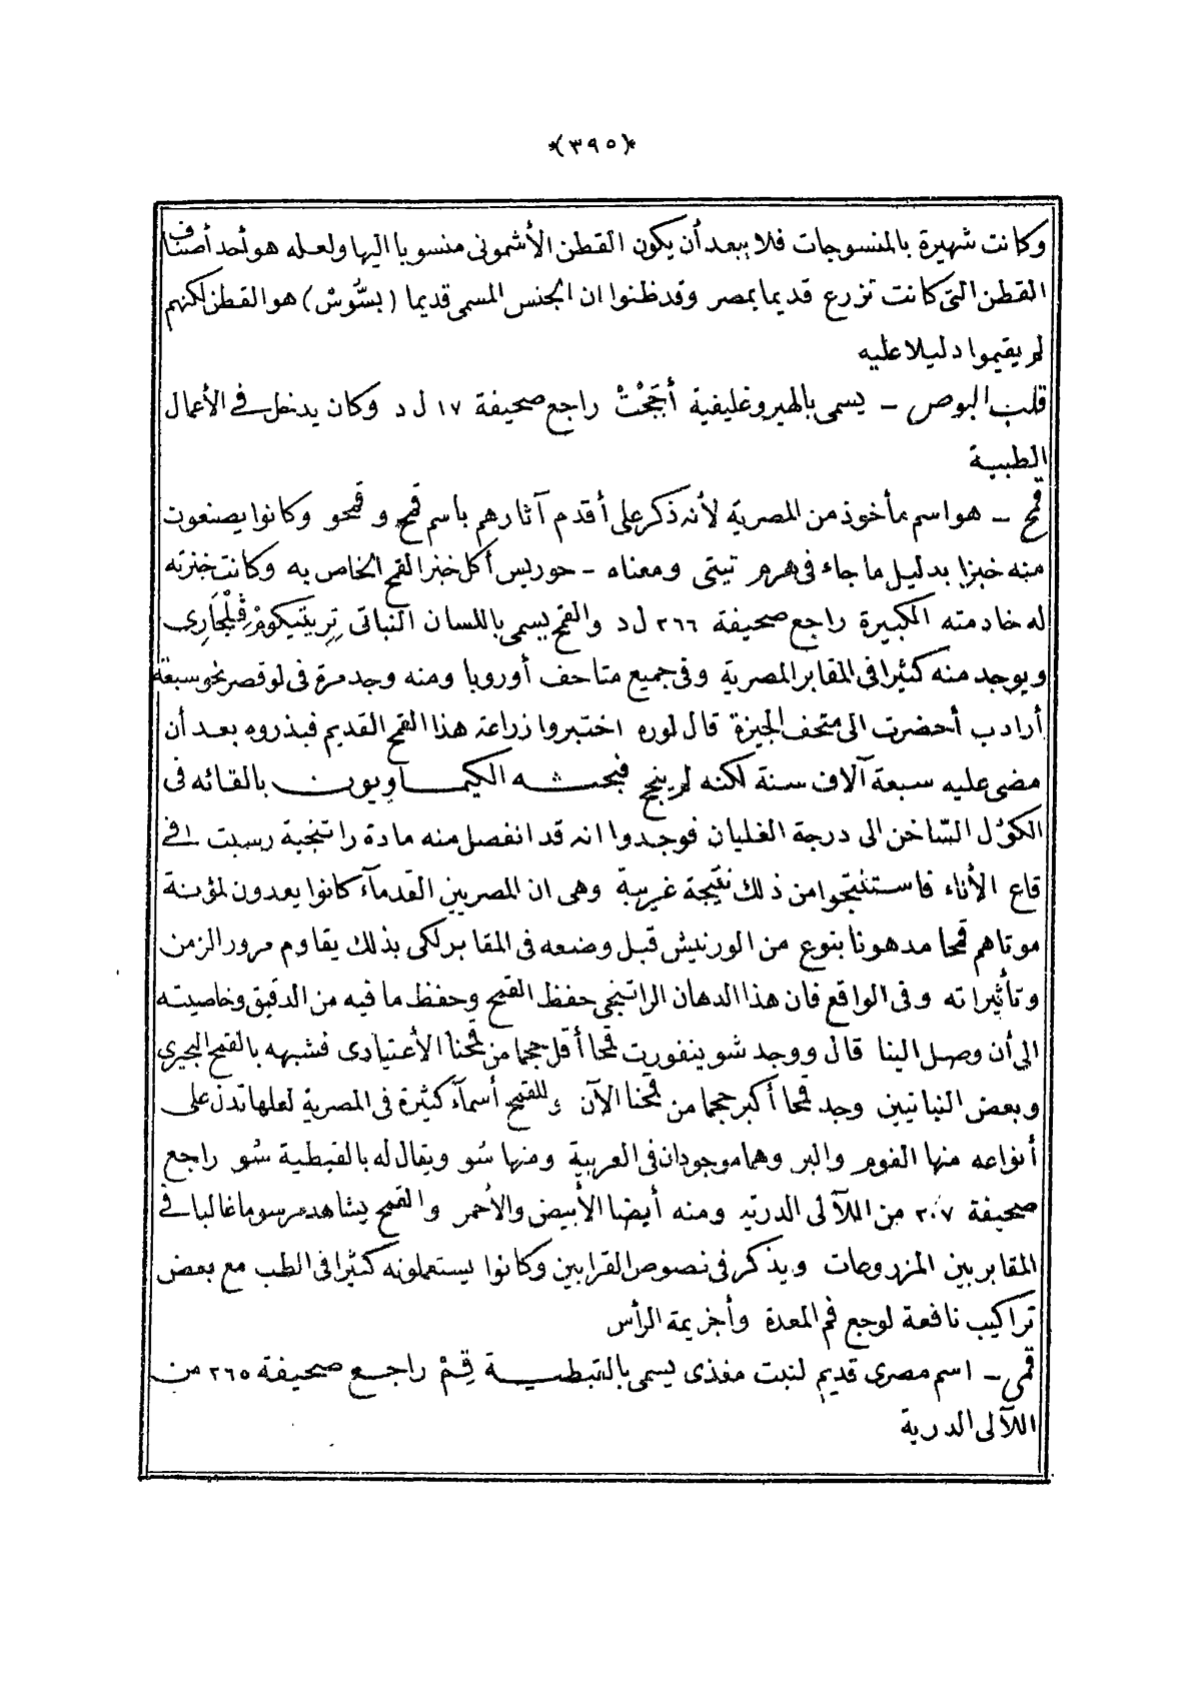 *(٣٩٥)*
وكانت شهيرة بالمنسوجات فلا يبعد أن يكون القطن الأشمونى منسوبا اليها ولعله هو أحد أصناف
القطن التى كانت تزرع قديما بمصر وقد ظنوا ان الجنس المسمى قديما (بسُّوسْ) هو القطن لكنهم
لم يقيموا دليلا عليه
قلب البوص ـ يسمى بالهيروغليفية أَجَحْتْ راجع صحيفة ١٧ ل د وكان يدخل فى الأعمال
الطبية
قمح ـ هو اسم مأخوذ من المصرية لأنه ذكر على أقدم آثارهم باسم قمح و قمحو وكانوا يصنعون
منه خبزا بدليل ما جاء فى هرم تيتى ومعناه ـ حوريس أكل خبز القمح الخاص به وكانت خبزته
له خادمته الكبيرة راجع صحيفة ٢٦٦ ل د والقمح يسمى باللسان النباتى تِرِيتيكومْ ڤُلْجَارِى
ويوجد منه كثيرا فى المقابر المصرية وفى جميع متاحف أوروبا ومنه وجد مرة فى لوقصر نحو سبعة
أرادب أحضرت الى متحف الجيزة قال لوره اختبروا زراعة هذا القمح القديم فبذروه بعد أن
مضى عليه سبعة آلاف سنة لكنه لم ينجح فبحثه الكيماويون بالقائه فى
الكؤل السّاخن الى درجة الغليان فوجدوا انه قد انفصل منه مادة راتنجية رسبت فى
قاع الأناء فاستنتجوا من ذلك نتيجة غريبة وهى ان المصريين القدمآء كانوا يعدون لمؤنة
موتاهم قمحا مدهونا بنوع من الورنيش قبل وضعه فى المقابر لكى بذلك يقاوم مرور الزمن
وتأثيراته وفى الواقع فان هذا الدهان الراتنجى حفظ القمح وحفظ ما فيه من الدقيق وخاصيته
الى أن وصل الينا قال ووجد شوينفورت قمحا أقل حجما من قمحنا الأعتيادى فشبهه بالقمح البحيرى
وبعض النباتيين وجد قمحا أكبر حجما من قمحنا الآن وللقمح أسمآء كثيرة فى المصرية لعلها تدل على
أنواعه منها الفوم والبر وهما موجودان فى العربية ومنها سُو ويقال له بالقبطية سُو راجع
صحيفة ٢٠٧ من اللآلى الدريه ومنه أيضا الأبيض والأحمر والقمح يشاهد مرسوما غالبا فى
المقابر بين المزروعات ويذكر فى نصوص القرابين وكانوا يستعملونه كثيرا فى الطب مع بعض
تراكيب نافعة لوجع فم المعدة وأجزيمة الرأس
قمى ـ اسم مصرى قديم لنبت مغذى يسمى بالقبطية قِمْ راجع صحيفة ٢٦٥ من
اللآلى الدرية